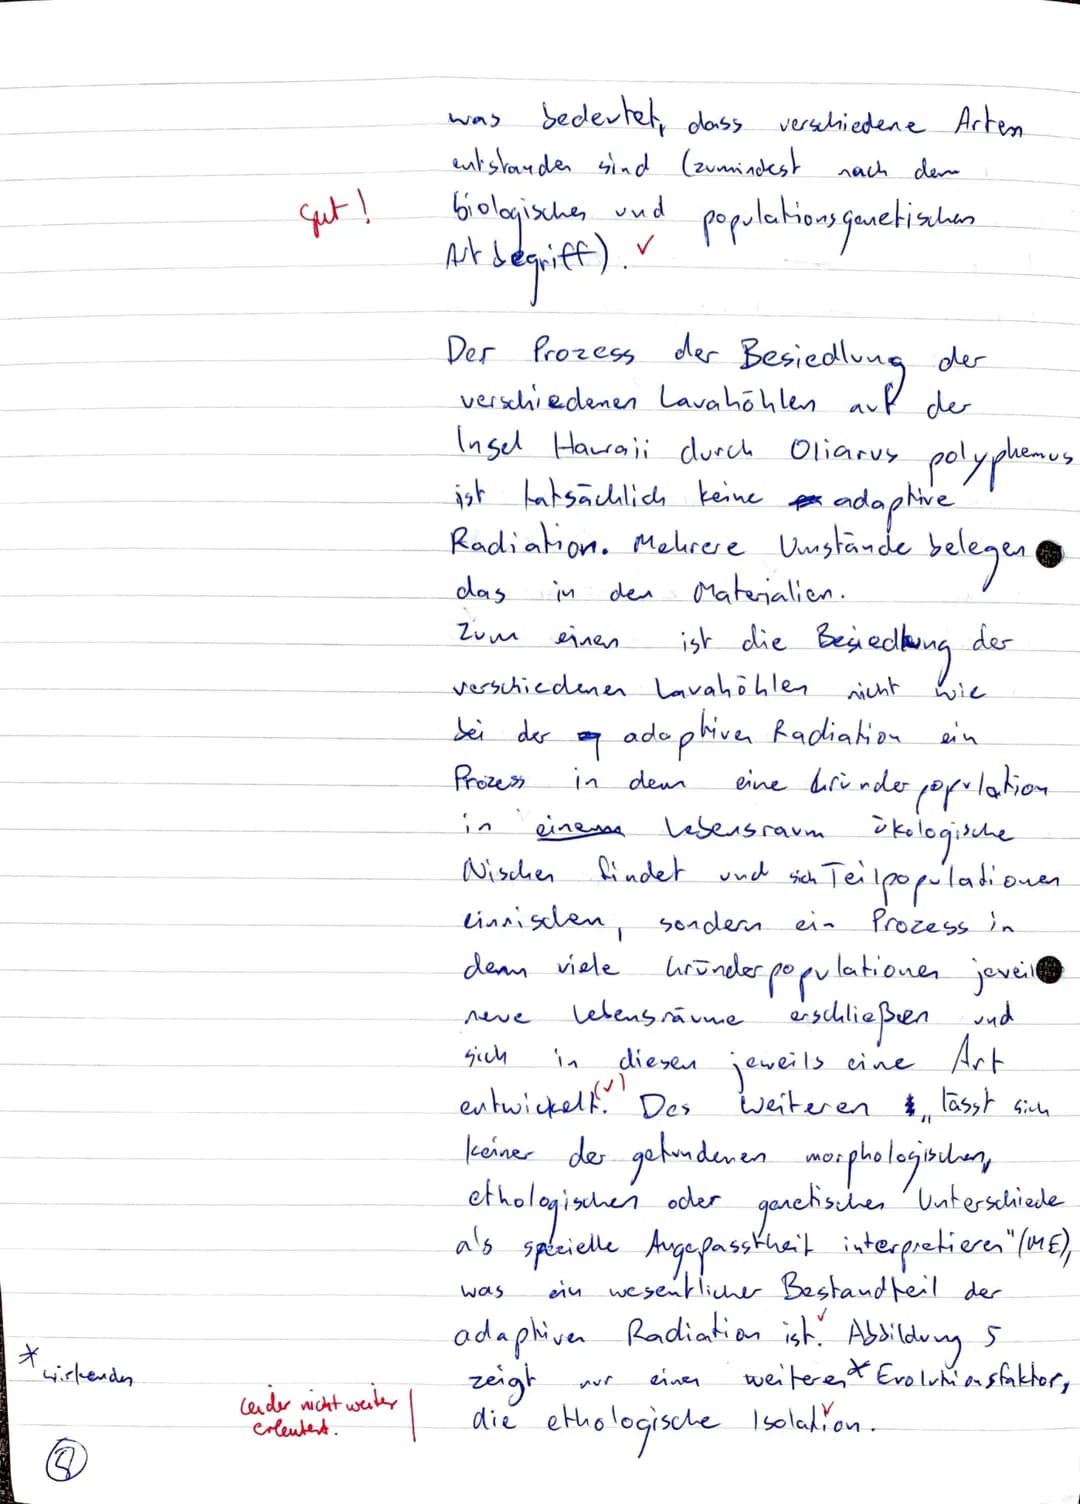 was bedeutet, dass verschiedene Arten
entstanden sind (zumindest nach dem
gut!
biologischen und populationsgenetischen
Artbegriff). ✓
Der Prozess der Besiedlung der
verschiedenen Lavahöhlen auf der
Insel Hawaii durch Oliarus polyphemus
ist tatsächlich keine adaptive
Radiation. Mehrere Umstände belegen
das in den Materialien.
Zum einen ist die Besiedlung der
verschiedenen Lavahöhlen nicht wie
bei der adaptiven Radiation ein
Prozess in dem eine Gründerpopulation
in einem Lebensraum ökologische
Nischen findet und sich Teilpopulationen
einnischen, sondern ein Prozess in
dem viele Gründerpopulationen jeweil
neue Lebensräume erschließen und
sich in diesen jeweils eine Art
entwickelt. (✓) Des Weiteren „lässt sich
keiner der gefundenen morphologischen,
ethologischen oder genetischen Unterschiede
als spezielle Angepasstheit interpretieren" (ME),
was ein wesentlicher Bestandteil der
adaptiven Radiation ist. ✓ Abbildung 5
* wirkenden
zeigt nur einen weiteren * Evolutionsfaktor,
leider nicht weiter
erleutert.
die ethologische Isolation. ✓
8